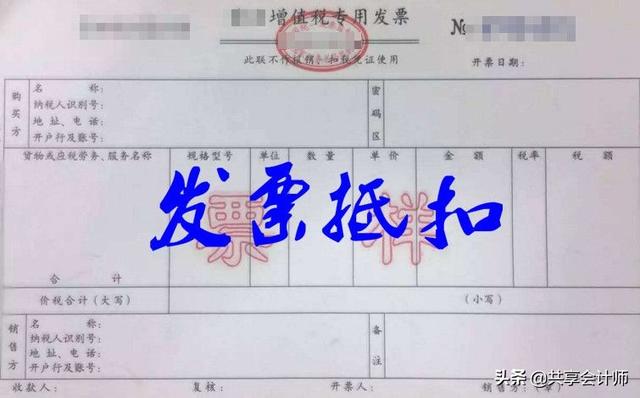 增值税专用发票
№
此联不作报销、扣税凭证使用
开票日期：
购买方
名 称：
纳税人识别号：
地址、电话：
开户行及账号：
密码区
货物或应税劳务、服务名称 规格型号 单位 数量 单价 金额 税率 税额
票样
发票抵扣
合计
价税合计（大写） （小写）
销售方
名 称：
纳税人识别号：
地址、电话：
开户行及账号：
备注
收款人： 复核： 开票人： 销售方：（章）
头条 @共享会计师